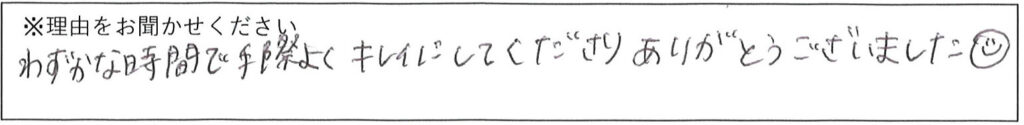 ※理由をお聞かせください
わずかな時間で手際よくキレイにしてくださりありがとうございました☺